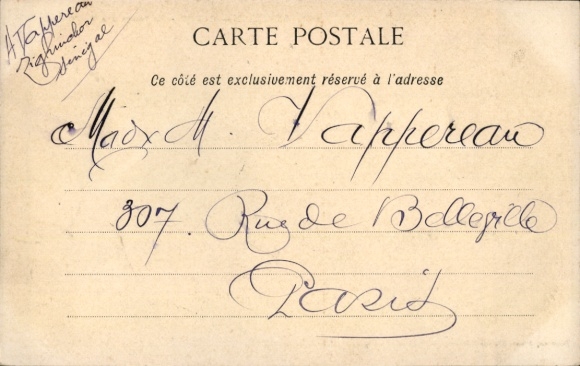 A Vappereau
Ziguinchor
Sénégal
CARTE POSTALE
Ce côté est exclusivement réservé à l'adresse
M. Vappereau
307. Rue de Belleville
Paris